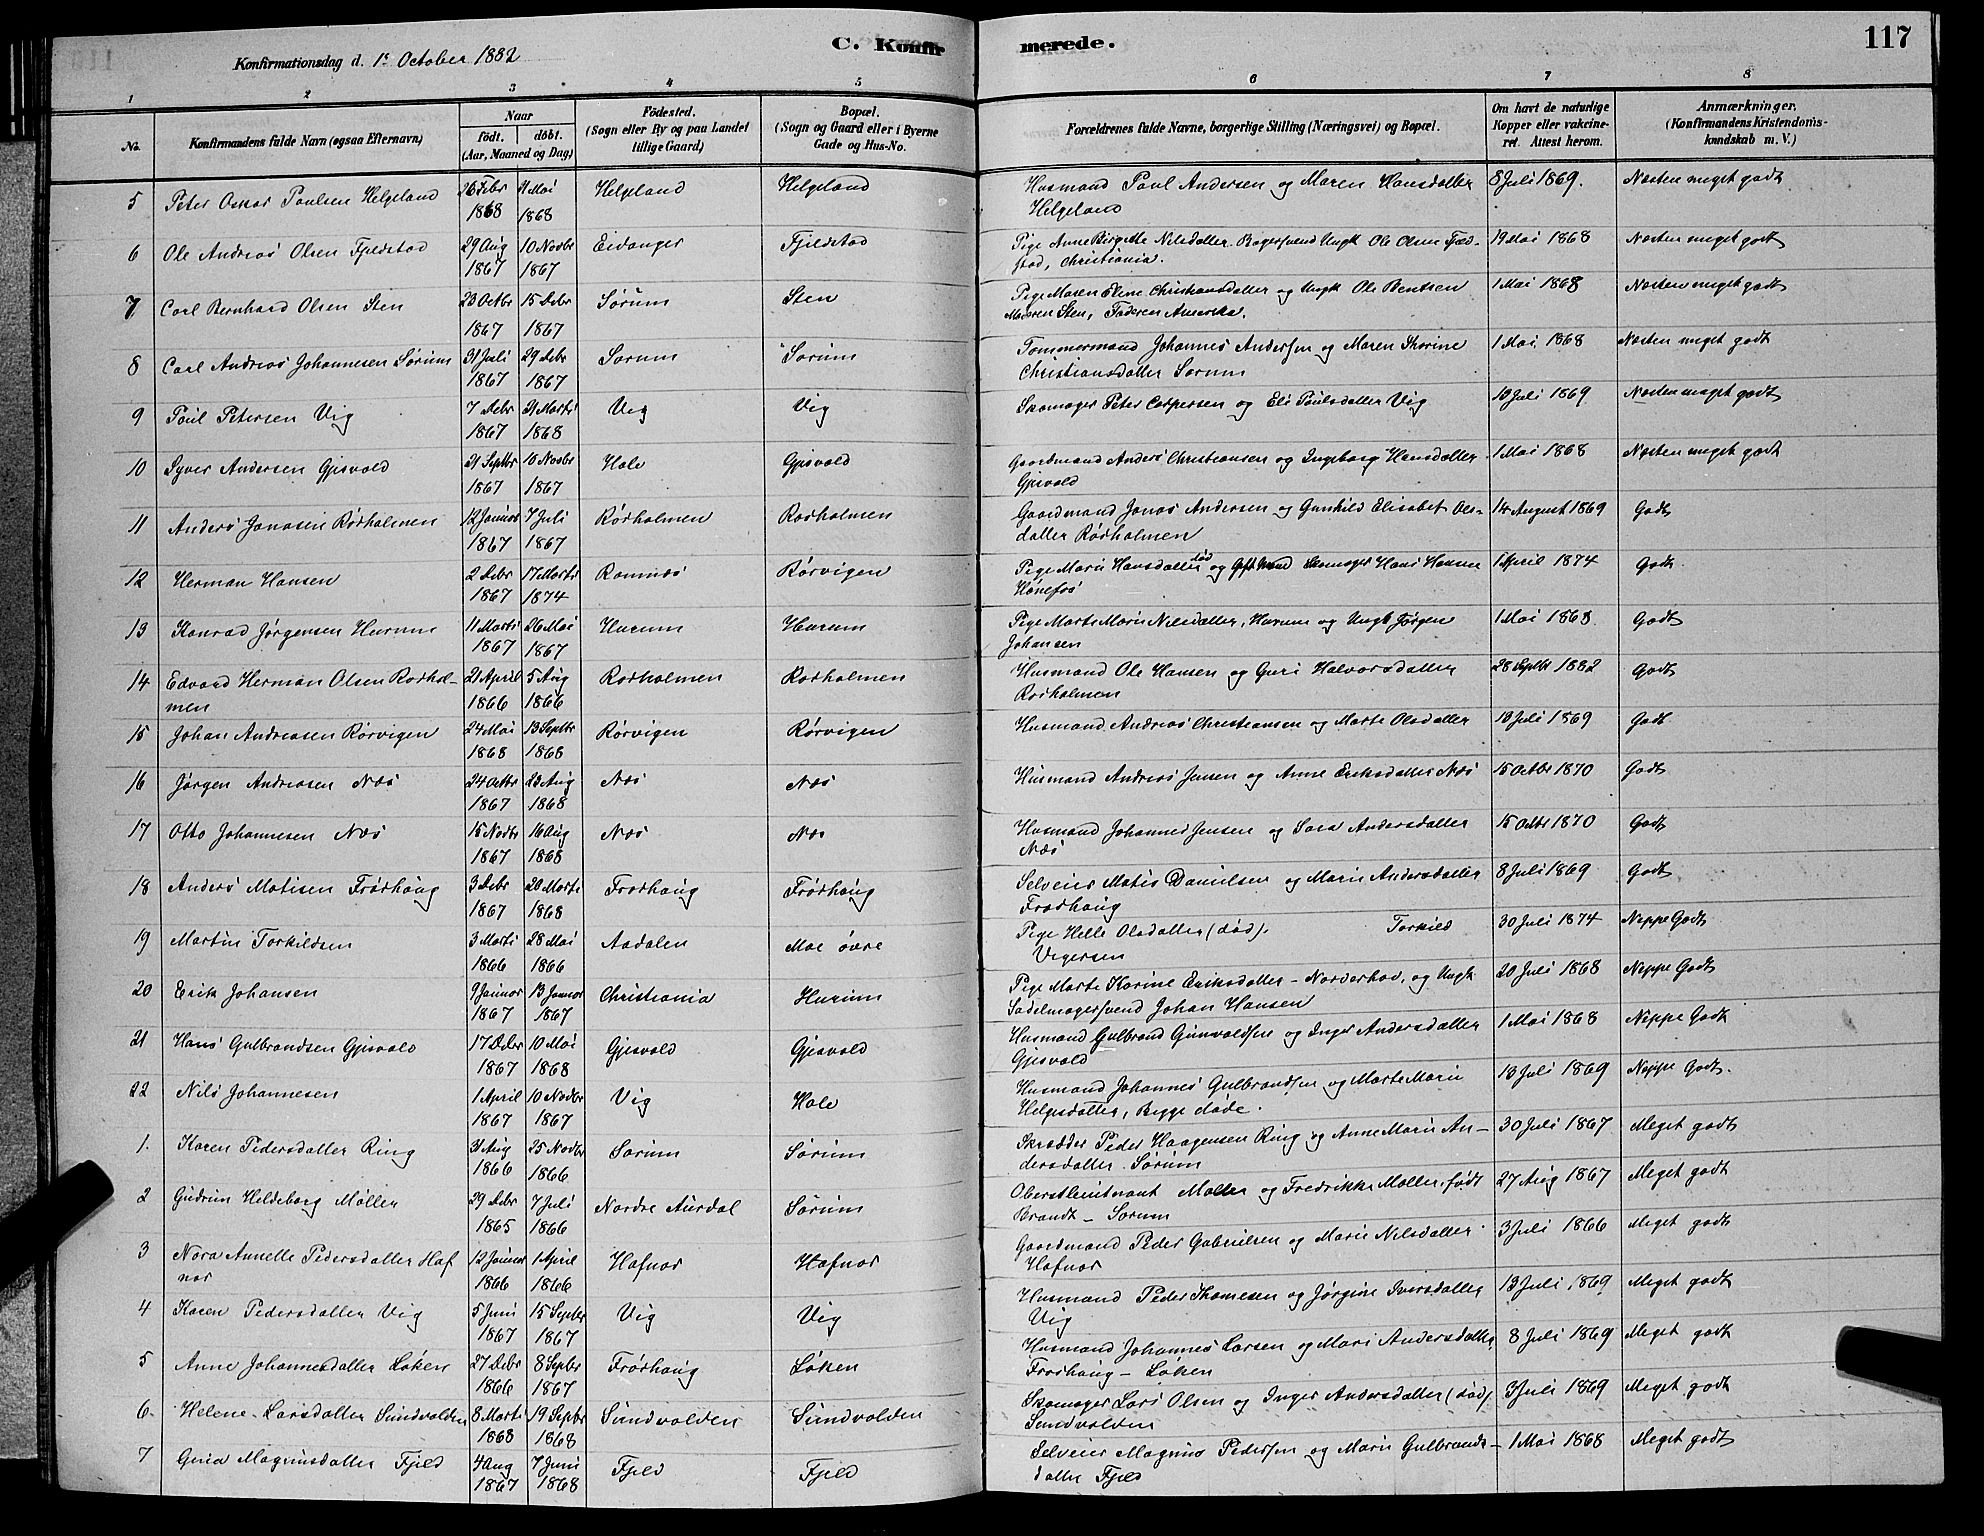 117
C. Konfirmerede.
Konfirmationsdag d. 1ste October 1882
1 2 3 4 5 6 7 8
No. Konfirmandens fulde Navn (ogsaa Efternavn) Naar født. døbt. (Aar, Maaned og Dag) Fødested. (Sogn eller By og paa Landet tillige Gaard) Bopæl. (Sogn og Gaard eller i Byerne Gade og Hus-No. Forældrenes fulde Navne, borgerlige Stilling (Næringsvei) og Bopæl. Om havt de naturlige Kopper eller vakcineret. Attest herom. Anmærkninger. (Konfirmandens Kristendomskundskab m. V.)
5 Peter Oskar Paulsen Helgeland 26 Febr 1868 21 Mai 1868 Helgeland Helgeland Husmand Paul Andersen og Maren Hansdatter Helgeland 8 Juli 1869. Næsten meget godt
6 Ole Andreas Olsen Fjeldstad 29 Aug 1867 10 Novbr 1867 Eidanger Fjeldstad Pige Anne Birgitte Nilsdatter, Bagersvend Ungk Ole Olsen Fjeldstad, Christiania. 19 Mai 1868 Næsten meget godt
7 Carl Bernhard Olsen Sten 23 Octbr 1867 15 Debr 1867 Sørum Sten Pige Maren Eline Christiansdatter og Ungk Ole Bentsen Moderen Sten, Faderen Amerika. 1 Mai 1868 Næsten meget godt
8 Carl Andreas Johannesen Sørum 31 Juli 1867 29 Debr 1867 Sørum Sørum Tømmermand Johannes Andersen og Maren Thorine Christiansdatter Sørum 1 Mai 1868 Næsten meget godt
9 Paul Petersen Vig 7 Debr 1867 21 Marts 1868 Vig Vig Skomager Peter Caspersen og Eli Paulsdatter Vig 13 Juli 1869 Næsten meget godt
10 Syver Andersen Gjesvold 21 Septbr 1867 10 Novbr 1867 Hole Gjesvold Gaardmand Anders Christiansen og Ingeborg Hansdatter Gjesvold 1 Mai 1868 Næsten meget godt
11 Anders Jonasen Rørholmen 12 Januar 1867 7 Juli 1867 Rørholmen Rørholmen Gaardmand Jonas Andersen og Gunhild Elisabet Olsdatter Rørholmen 14 August 1869 Godt
12 Herman Hansen 2 Debr 1867 17 Marts 1874 Romnæs Rørvigen Pige Marie Hansdatter død og Gift Mand Skomager Hans Hansen Hønefos 1 April 1874 Godt
13 Konrad Jørgensen Hurum 11 Marts 1867 26 Mai 1867 Hurum Hurum Pige Marte Marie Nilsdatter, Hurum og Ungk Jørgen Johansen 1 Mai 1868 Godt
14 Edvard Herman Olsen Rørholmen 21 April 1866 5 Aug 1866 Rørholmen Rørholmen Husmand Ole Hansen og Guri Halvorsdatter Rørholmen 28 Septbr 1882 Godt
15 Johan Andreasen Rørvigen 24 Mai 1868 13 Septbr 1868 Rørvigen Rørvigen Husmand Andreas Christiansen og Marte Olsdatter 13 Juli 1869 Godt
16 Jørgen Andreasen Næs 24 Octbr 1867 23 Aug 1868 Næs Næs Husmand Andreas Jensen og Anne Eriksdatter Næs 15 Octbr 1870 Godt
17 Otto Johannesen Næs 15 Novbr 1867 16 Aug 1868 Næs Næs Husmand Johannes Jensen og Sara Andersdatter Næs 15 Octbr 1870 Godt
18 Anders Matisen Frørhaug 3 Debr 1867 20 Marts 1868 Frørhaug Frørhaug Selveier Matis Danielsen og Marie Andersdatter Frørhaug 8 Juli 1869 Godt
19 Martin Torkildsen 3 Marts 1866 28 Mai 1866 Aadalen Moe øvre Pige Helle Olsdatter (død). Torkild Vegersen 30 Juli 1874 Neppe Godt
20 Erik Johansen 9 Januar 1867 13 Januar 1867 Christiania Hurum Pige Marte Karine Eriksdatter – Norderhov, og Ungk Sadelmagersvend Johan Hansen 20 Juli 1868 Neppe Godt
21 Hans Gulbrandsen Gjesvold 17 Debr 1867 10 Mai 1868 Gjesvold Gjesvold Husmand Gulbrand Gunvoldsen og Inger Andersdatter Gjesvold 1 Mai 1868 Neppe Godt
22 Nils Johannesen 1 April 1867 10 Novbr 1867 Vig Hole Husmand Johannes Gulbrandsen og Marte Marie Helgesdatter, Begge døde. 13 Juli 1869 Neppe Godt.
1. Karen Pedersdatter Ring 31 Aug 1866 25 Novbr 1866 Sørum Sørum Skrædder Peder Haagensen Ring og Anne Marie Andersdatter. Sørum 30 Juli 1867 Meget godt
2 Gudrun Heldeborg Møller 29 Debr 1865 7 Juli 1866 Nordre Aurdal Sørum Oberstleutnant Møller og Fredrikke Møller, født Brandt – Sørum 27 Aug 1867 Meget godt
3 Nora Annette Pedersdatter Hafnor 12 Januar 1866 1 April 1866 Hafnor Hafnor Gaardmand Peder Gabrielsen og Marie Nilsdatter Hafnor 3 Juli 1866 Meget godt
4 Karen Pedersdatter Vig 5 Juni 1867 15 Septbr 1867 Vig Vig Husmand Peder Thomesen og Jørgine Iversdatter Vig 13 Juli 1869 Meget godt
5 Anne Johannesdatter Løken 27 Debr 1866 8 Septbr 1867 Frørhaug Løken Husmand Johannes Larsen og Mari Andersdatter, Frørhaug – Løken 8 Juli 1869 Meget godt
6. Helene Larsdatter Sundvolden 8 Marts 1868 19 Septbr 1868 Sundvolden Sundvolden Skomager Lars Olsen og Inger Andersdatter (død) Sundvolden 3 Juli 1869 Meget godt
7 Gina Magnusdatter Fjeld 4 Aug 1867 7 Juni 1868 Fjeld Fjeld Selveier Magnus Pedersen og Marie Gulbrandsdatter Fjeld 1 Mai 1868 Meget godt